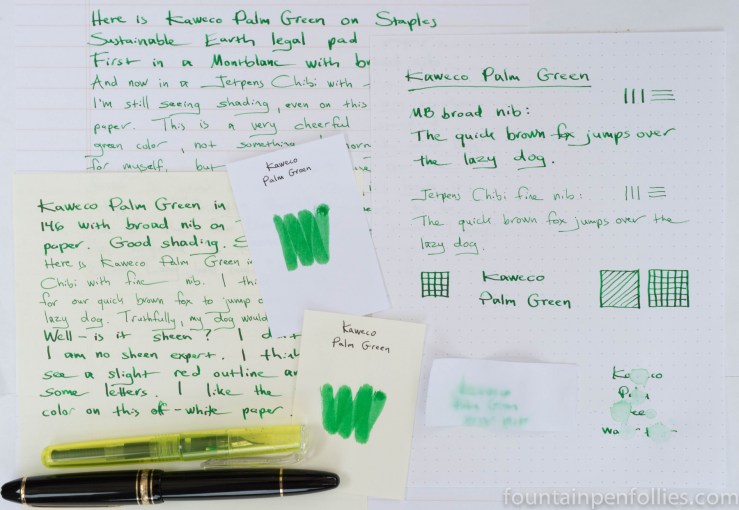 Here is Kaweco Palm Green on Staples
Sustainable Earth legal pad
First in a Montblanc with
And now in a Jetpens Chibi with
I'm still seeing shading, even on this
paper. This is a very cheerful
green color, not something
for myself, but
Kaweco Palm Green in
146 with broad nib on
paper. Good shading.
Here is Kaweco Palm Green in
Chibi with fine nib. I
for our quick brown fox to jump
lazy dog. Truthfully, my dog would
Well - is it sheen? I
I am no sheen expert. I
see a slight red outline
some letters. I like the
color on this off-white paper.
Kaweco
Palm Green
Kaweco
Palm Green
Kaweco Palm Green
MB broad nib:
The quick brown fox jumps over
the lazy dog.
Jetpens Chibi fine nib:
The quick brown fox jumps over the
lazy dog.
Kaweco
Palm Green
fountainpenfollies.com